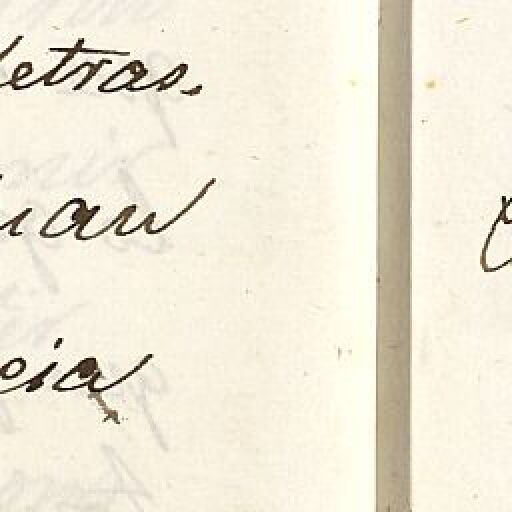 letras.
uan
cia